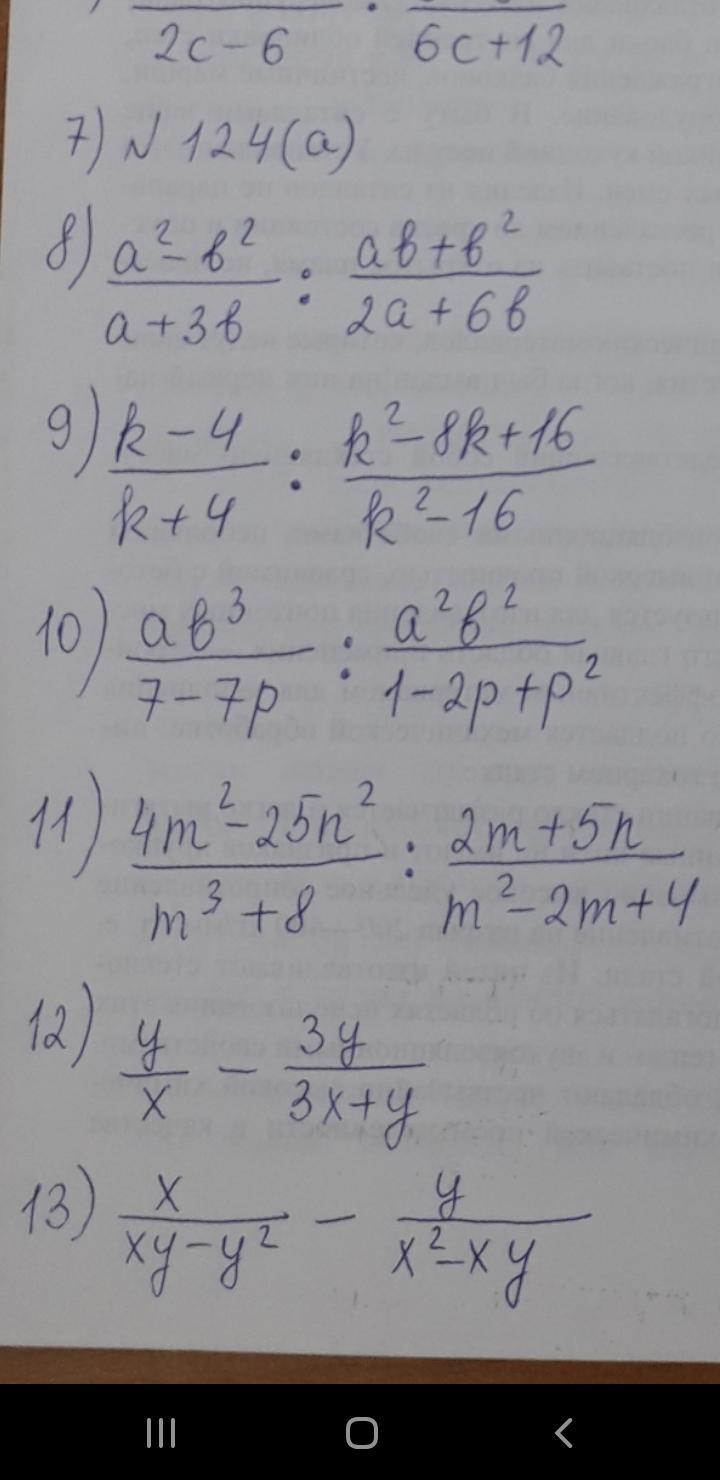 2c-6 6c+12
7) N 124(a)
8) (a²-в²)/(a+3в) : (aв+в²)/(2a+6в)
9) (k-4)/(k+4) : (k²-8k+16)/(k²-16)
10) (aв³)/(7-7p) : (a²в²)/(1-2p+p²)
11) (4m²-25n²)/(m³+8) : (2m+5n)/(m²-2m+4)
12) y/x - 3y/(3x+y)
13) x/(xy-y²) - y/(x²-xy)